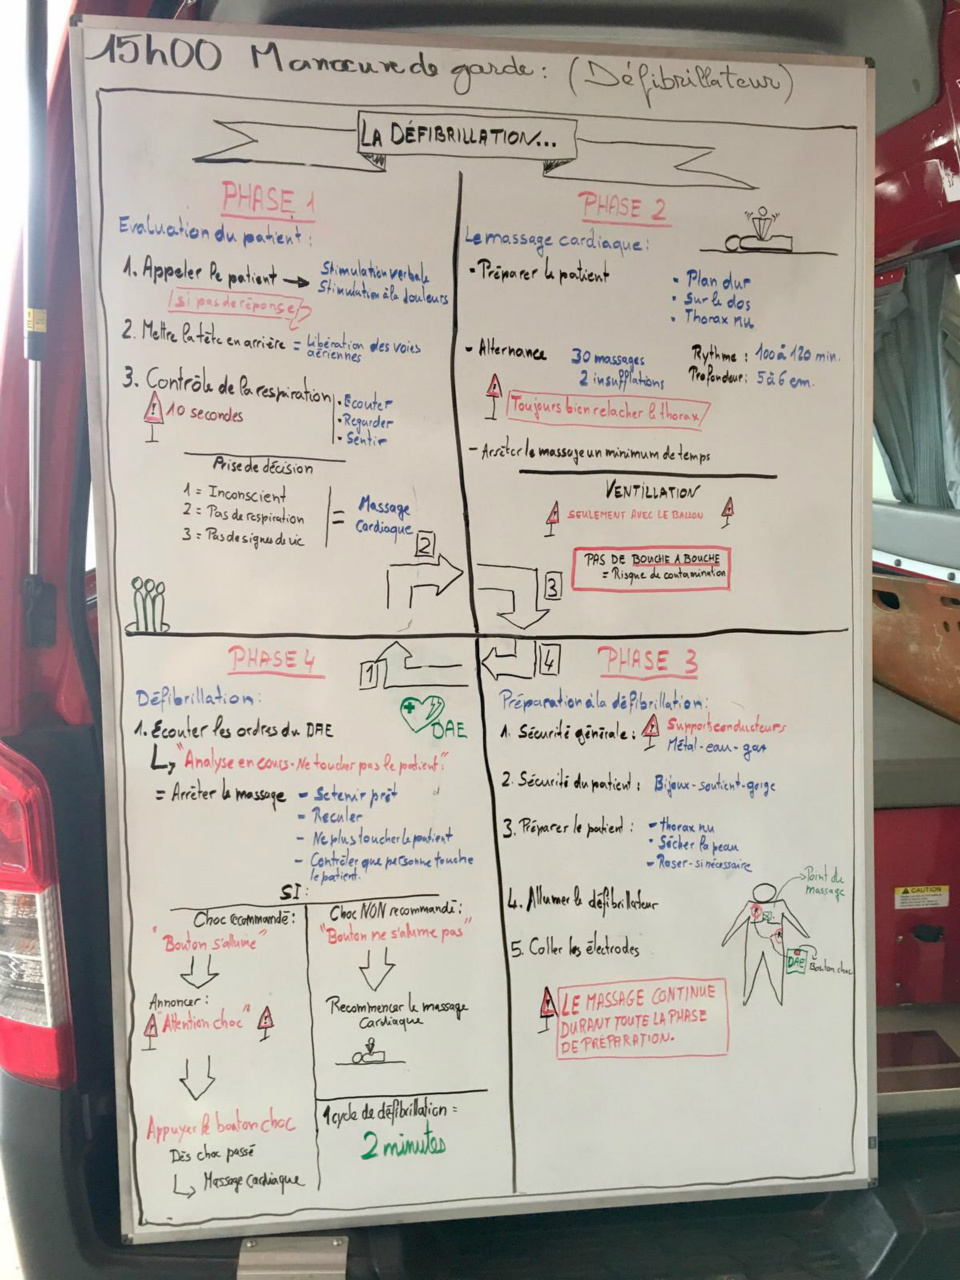 15h00 Manoeuvre de garde : (Défibrillateur)
LA DÉFIBRILLATION...
PHASE 1
Evaluation du patient :
1. Appeler le patient → Stimulation verbale
Stimulation à la douleurs
si pas de réponse
2. Mettre la tête en arrière = Libération des voies
aériennes
3. Contrôle de la respiration
10 secondes
• Ecouter
• Regarder
• Sentir
Prise de décision
1 = Inconscient
2 = Pas de respiration
3 = Pas de signes de vie
= Massage
Cardiaque
2
PHASE 2
Le massage cardiaque :
• Préparer le patient
• Plan dur
• Sur le dos
• Thorax nu
- Alternance 30 massages
2 insufflations
Rythme : 100 à 120 min.
Profondeur : 5 à 6 cm.
Toujours bien relacher le thorax
- Arrêter le massage un minimum de temps
VENTILLATION
SEULEMENT AVEC LE BALLON
PAS DE BOUCHE A BOUCHE
= Risque de contamination
3
PHASE 4
1
Défibrillation :
DAE
1. Ecouter les ordres du DAE
↳ "Analyse en cours - Ne toucher pas le patient."
= Arrêter le massage - Se tenir prêt
- Reculer
- Ne plus toucher le patient
- Contrôler que personne touche
le patient.
SI :
Choc recommandé :
"Bouton s'allume"
Annoncer :
"Attention choc"
Appuyer le bouton choc
Dès choc passé
↳ Massage cardiaque
Choc NON recommandé :
"Bouton ne s'alume pas"
Recommencer le massage
Cardiaque
1 cycle de défibrillation =
2 minutes
4
PHASE 3
Préparation à la défibrillation :
1. Sécurité générale : Support conducteurs
Métal - eau - gaz
2. Sécurité du patient : Bijoux - soutient-gorge
3. Préparer le patient : - thorax nu
• Sécher la peau
- Raser - si nécessaire
4. Allumer le défibrillateur
5. Coller les électrodes
Point du
massage
DAE
Bouton choc
LE MASSAGE CONTINUE
DURANT TOUTE LA PHASE
DE PRÉPARATION.
CAUTION